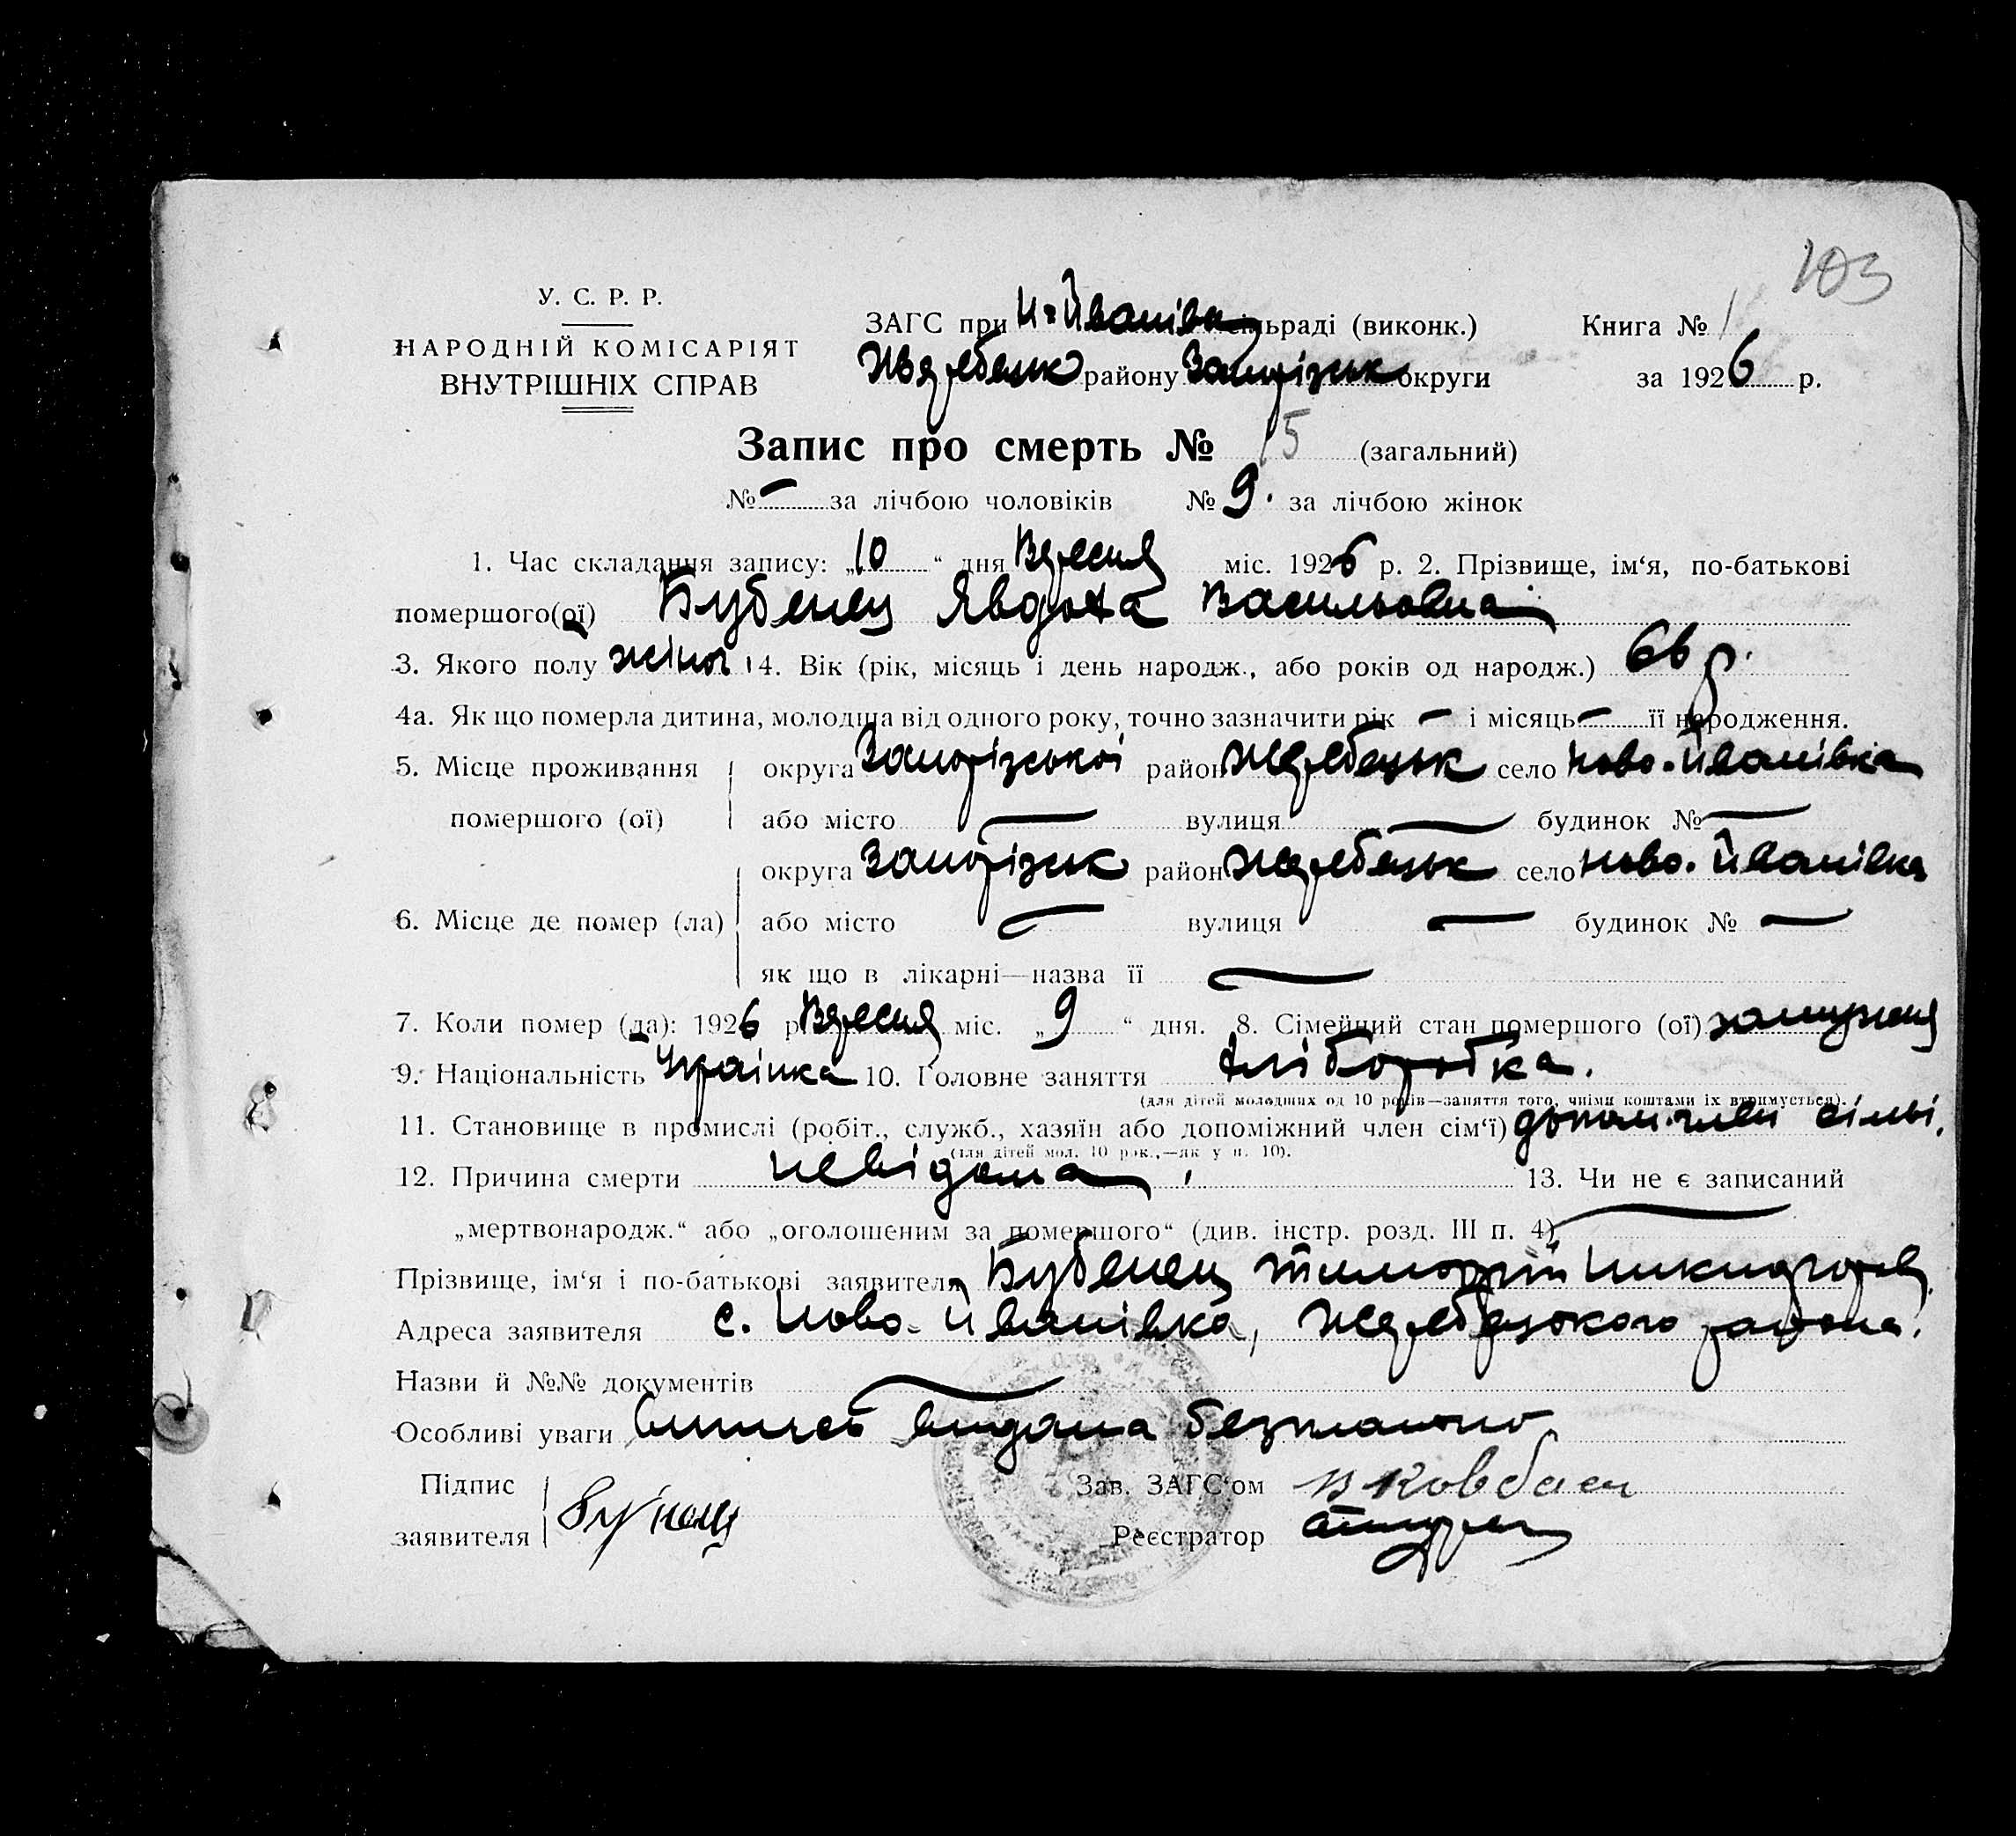 103
У. С. Р. Р.
НАРОДНІЙ КОМІСАРІЯТ
ВНУТРІШНІХ СПРАВ
ЗАГС при Н-Йванівс сільраді (виконк.)
Жеребецьк району Запорізьк округи
Книга № 1
за 1926 р.
Запис про смерть № 15 (загальний)
№ — за лічбою чоловіків № 9. за лічбою жінок
1. Час складання запису: „10“ дня Вересня міс. 1926 р. 2. Прізвище, ім‘я, по-батькові
помершого(ої) Бубенец Явдоха Васильовна
3. Якого полу жіноч 4. Вік (рік, місяць і день народж., або років од народж.) 66 р.
4а. Як що померла дитина, молодша від одного року, точно зазначити рік — і місяць — її народження.
5. Місце проживання помершого (ої) округа Запорізської район Жеребецьк село Ново-Йванівка
або місто — вулиця — будинок № —
6. Місце де помер (ла) округа Запорізьк район Жеребецьк село Ново-Йванівка
або місто — вулиця — будинок № —
як що в лікарні—назва її —
7. Коли помер (ла): 1926 р. Вересня міс. „9“ дня. 8. Сімейний стан помершого (ої) замужня
9. Національність Українка 10. Головне заняття хліборобка.
(для дітей молодших од 10 років—заняття того, чиїми коштами їх втримується).
11. Становище в промислі (робіт., служб., хазяїн або допоміжний член сім‘ї) допом. член сімьі.
(для дітей мол. 10 рок.,—як у п. 10).
12. Причина смерти невідома 13. Чи не є записаний
„мертвонародж.“ або „оголошеним за помершого“ (див. інстр. розд. III п. 4) —
Прізвище, ім‘я і по-батькові заявителя Бубенец Тимофій
Адреса заявителя с. Ново-Йванівка, Жеребецького района.
Назви й №№ документів —
Особливі уваги Виписъ видана безплатно
Підпис заявителя
Зав. ЗАГС‘ом
Реєстратор